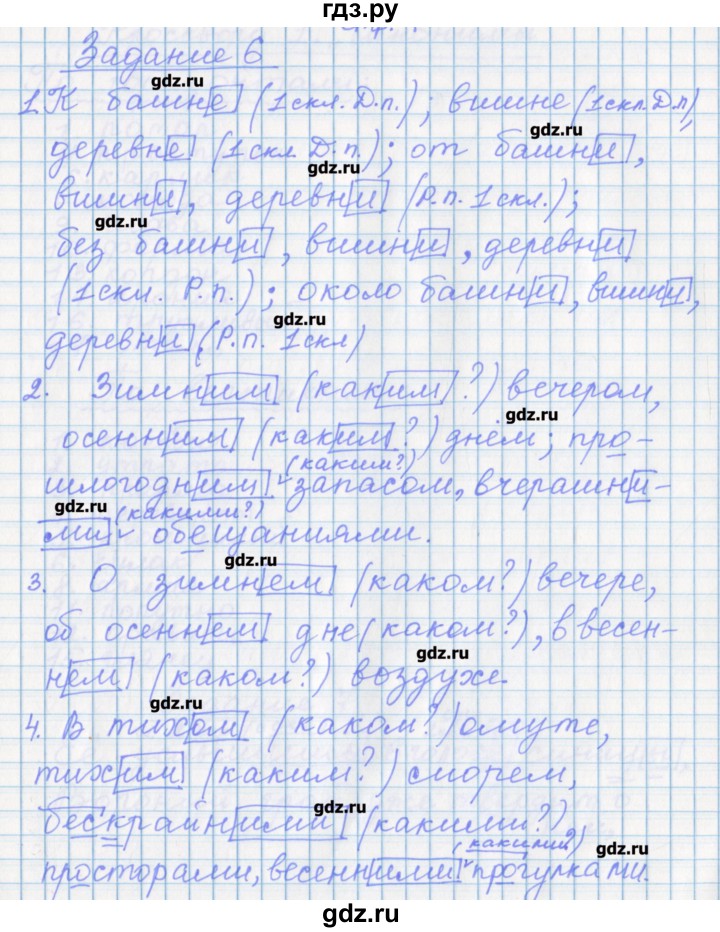 гдз.ру
Задание 6
gdz.ru
1. К башне (1 скл. Д.п.); вишне (1 скл. Д.п),
gdz.ru
деревне (1 скл. Д.п.); от башни,
gdz.ru
вишни, деревни (Р.п. 1 скл.);
gdz.ru
без башни, вишни, деревни
(1 скл. Р.п.); около башни, вишни,
gdz.ru
деревни (Р.п. 1 скл)
2. Зимним (каким?) вечером,
gdz.ru
осенним (каким?) днём; про-
(каким?)
шлогодним запасом, вчерашни-
gdz.ru
(какими?)
ми обещаниями.
gdz.ru
3. О зимнем (каком?) вечере,
об осеннем дне (каком?), в весен-
gdz.ru
нем (каком?) воздухе.
gdz.ru
4. В тихом (каком?) омуте,
тихим (каким?) морем,
gdz.ru
бескрайними (какими?)
(какими?)
gdz.ru
просторами, весенними прогулками.
gdz.ru